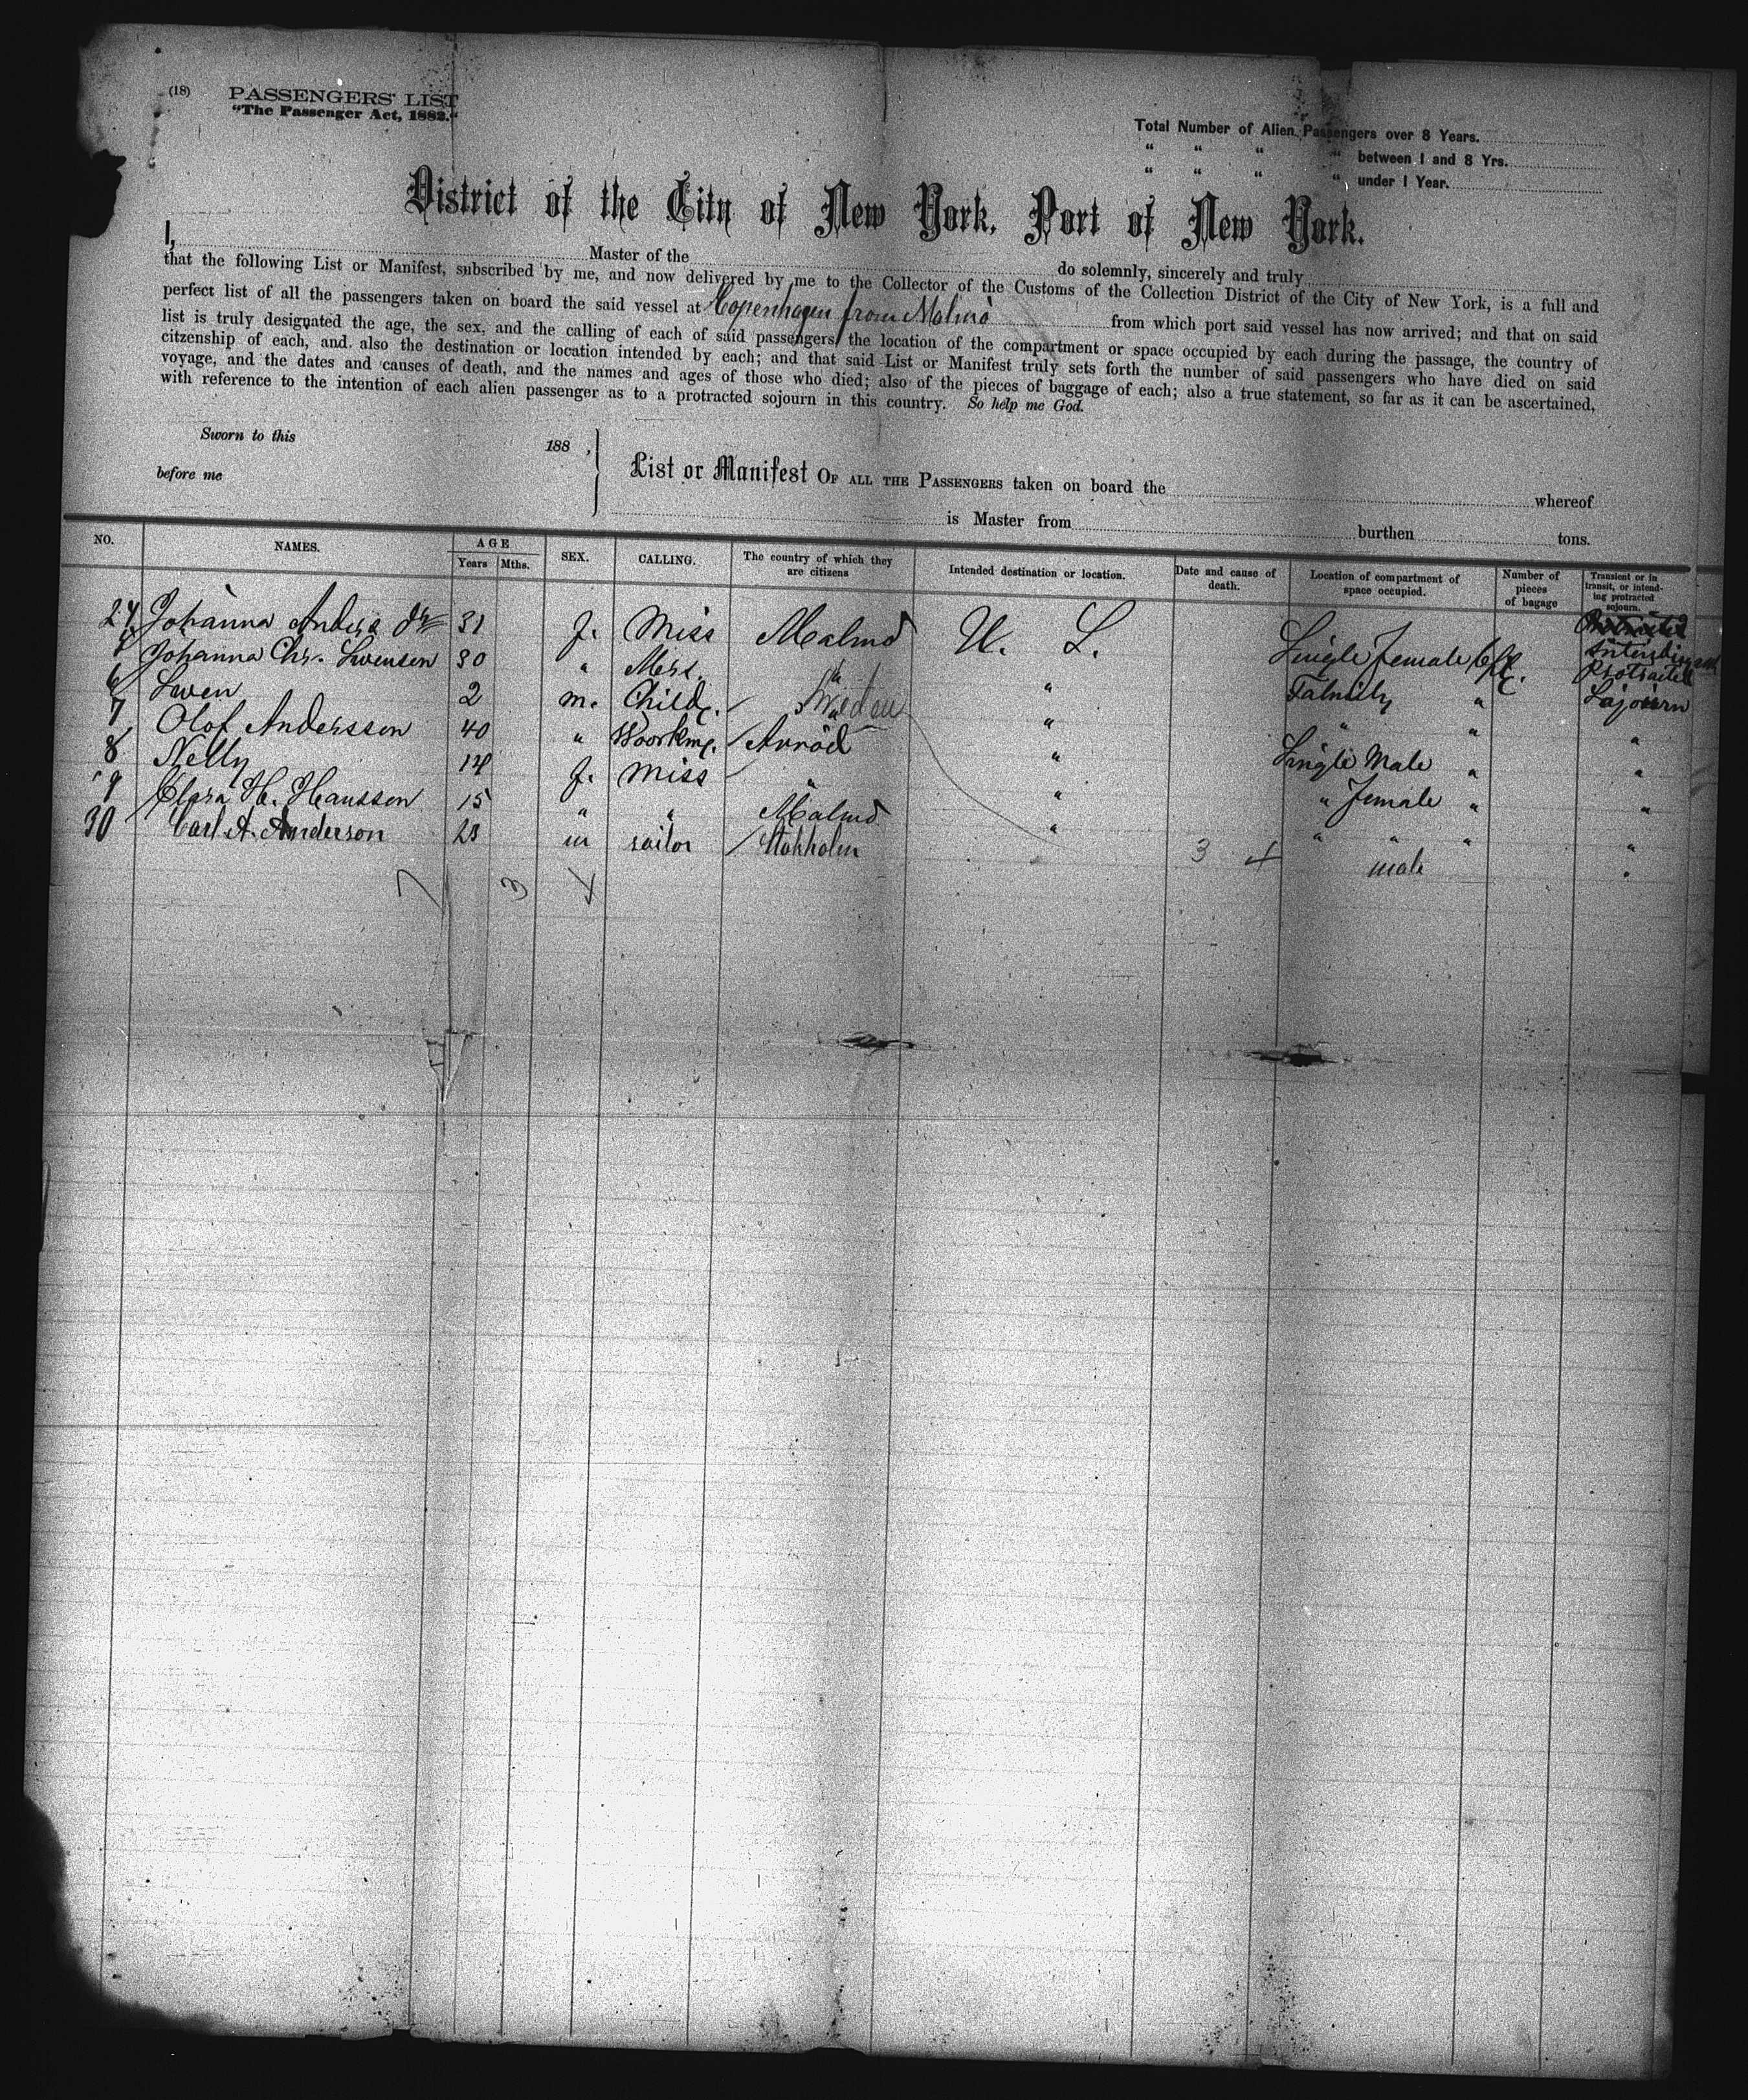 (18) PASSENGERS' LIST
"The Passenger Act, 1882."
Total Number of Alien Passengers over 8 Years.
" " " " between 1 and 8 Yrs.
" " " " under 1 Year.
District of the City of New York, Port of New York.
I, Master of the do solemnly, sincerely and truly
that the following List or Manifest, subscribed by me, and now delivered by me to the Collector of the Customs of the Collection District of the City of New York, is a full and
perfect list of all the passengers taken on board the said vessel at Copenhagen from Malmö from which port said vessel has now arrived; and that on said
list is truly designated the age, the sex, and the calling of each of said passengers, the location of the compartment or space occupied by each during the passage, the country of
citzenship of each, and also the destination or location intended by each; and that said List or Manifest truly sets forth the number of said passengers who have died on said
voyage, and the dates and causes of death, and the names and ages of those who died; also of the pieces of baggage of each; also a true statement, so far as it can be ascertained,
with reference to the intention of each alien passenger as to a protracted sojourn in this country. So help me God.
Sworn to this 188 ,
before me
List or Manifest OF ALL THE PASSENGERS taken on board the whereof
is Master from burthen tons.
NO. NAMES. AGE Years Mths. SEX. CALLING. The country of which they are citizens Intended destination or location. Date and cause of death. Location of compartment of space occupied. Number of pieces of bagage Transient or in transit, or intending protracted sojourn.
24 Johanna Anders 31 f. Miss Malmö U. Single Female
5 Johanna Chr. Swenson 30 " Mrs. " " Family " Protracted
6 Swen 2 m. Child. Sweden " " " Sojourn
7 Olof Andersson 40 " Workm. " Single Male " "
8 Nelly 14 f. Miss " " " Female " "
9 Clara H. Hansson 15 " " Malmö " " " " "
30 Carl A. Anderson 23 m sailor Stokholm 3 male "
7 3